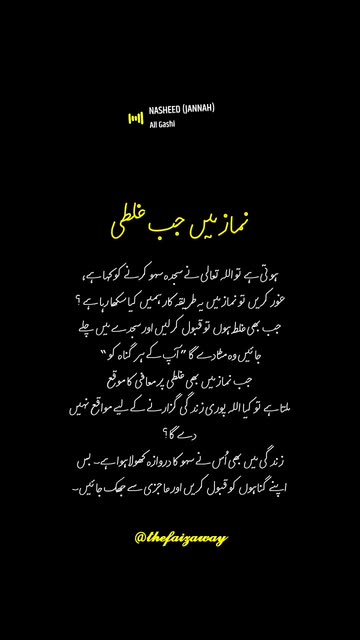 NASHEED (JANNAH)
Ali Gashi
نماز میں جب غلطی
ہوتی ہے تو اللہ تعالیٰ نے سجدہ سہو کرنے کو کہا ہے،
غور کریں تو نماز میں یہ طریقہ کار ہمیں کیا سکھا رہا ہے ؟
جب بھی غلط ہوں تو قبول کر لیں اور سجدے میں چلے
جائیں وہ مٹا دے گا ”آپ کے ہر گناہ کو“
جب نماز میں بھی غلطی پر معافی کا موقع
ملتا ہے تو کیا اللہ پوری زندگی گزارنے کے لیے مواقع نہیں
دے گا؟
زندگی میں بھی اُس نے سہو کا دروازہ کھولا ہوا ہے۔ بس
اپنے گناہوں کو قبول کریں اور عاجزی سے جھک جائیں۔
@thefaizaway